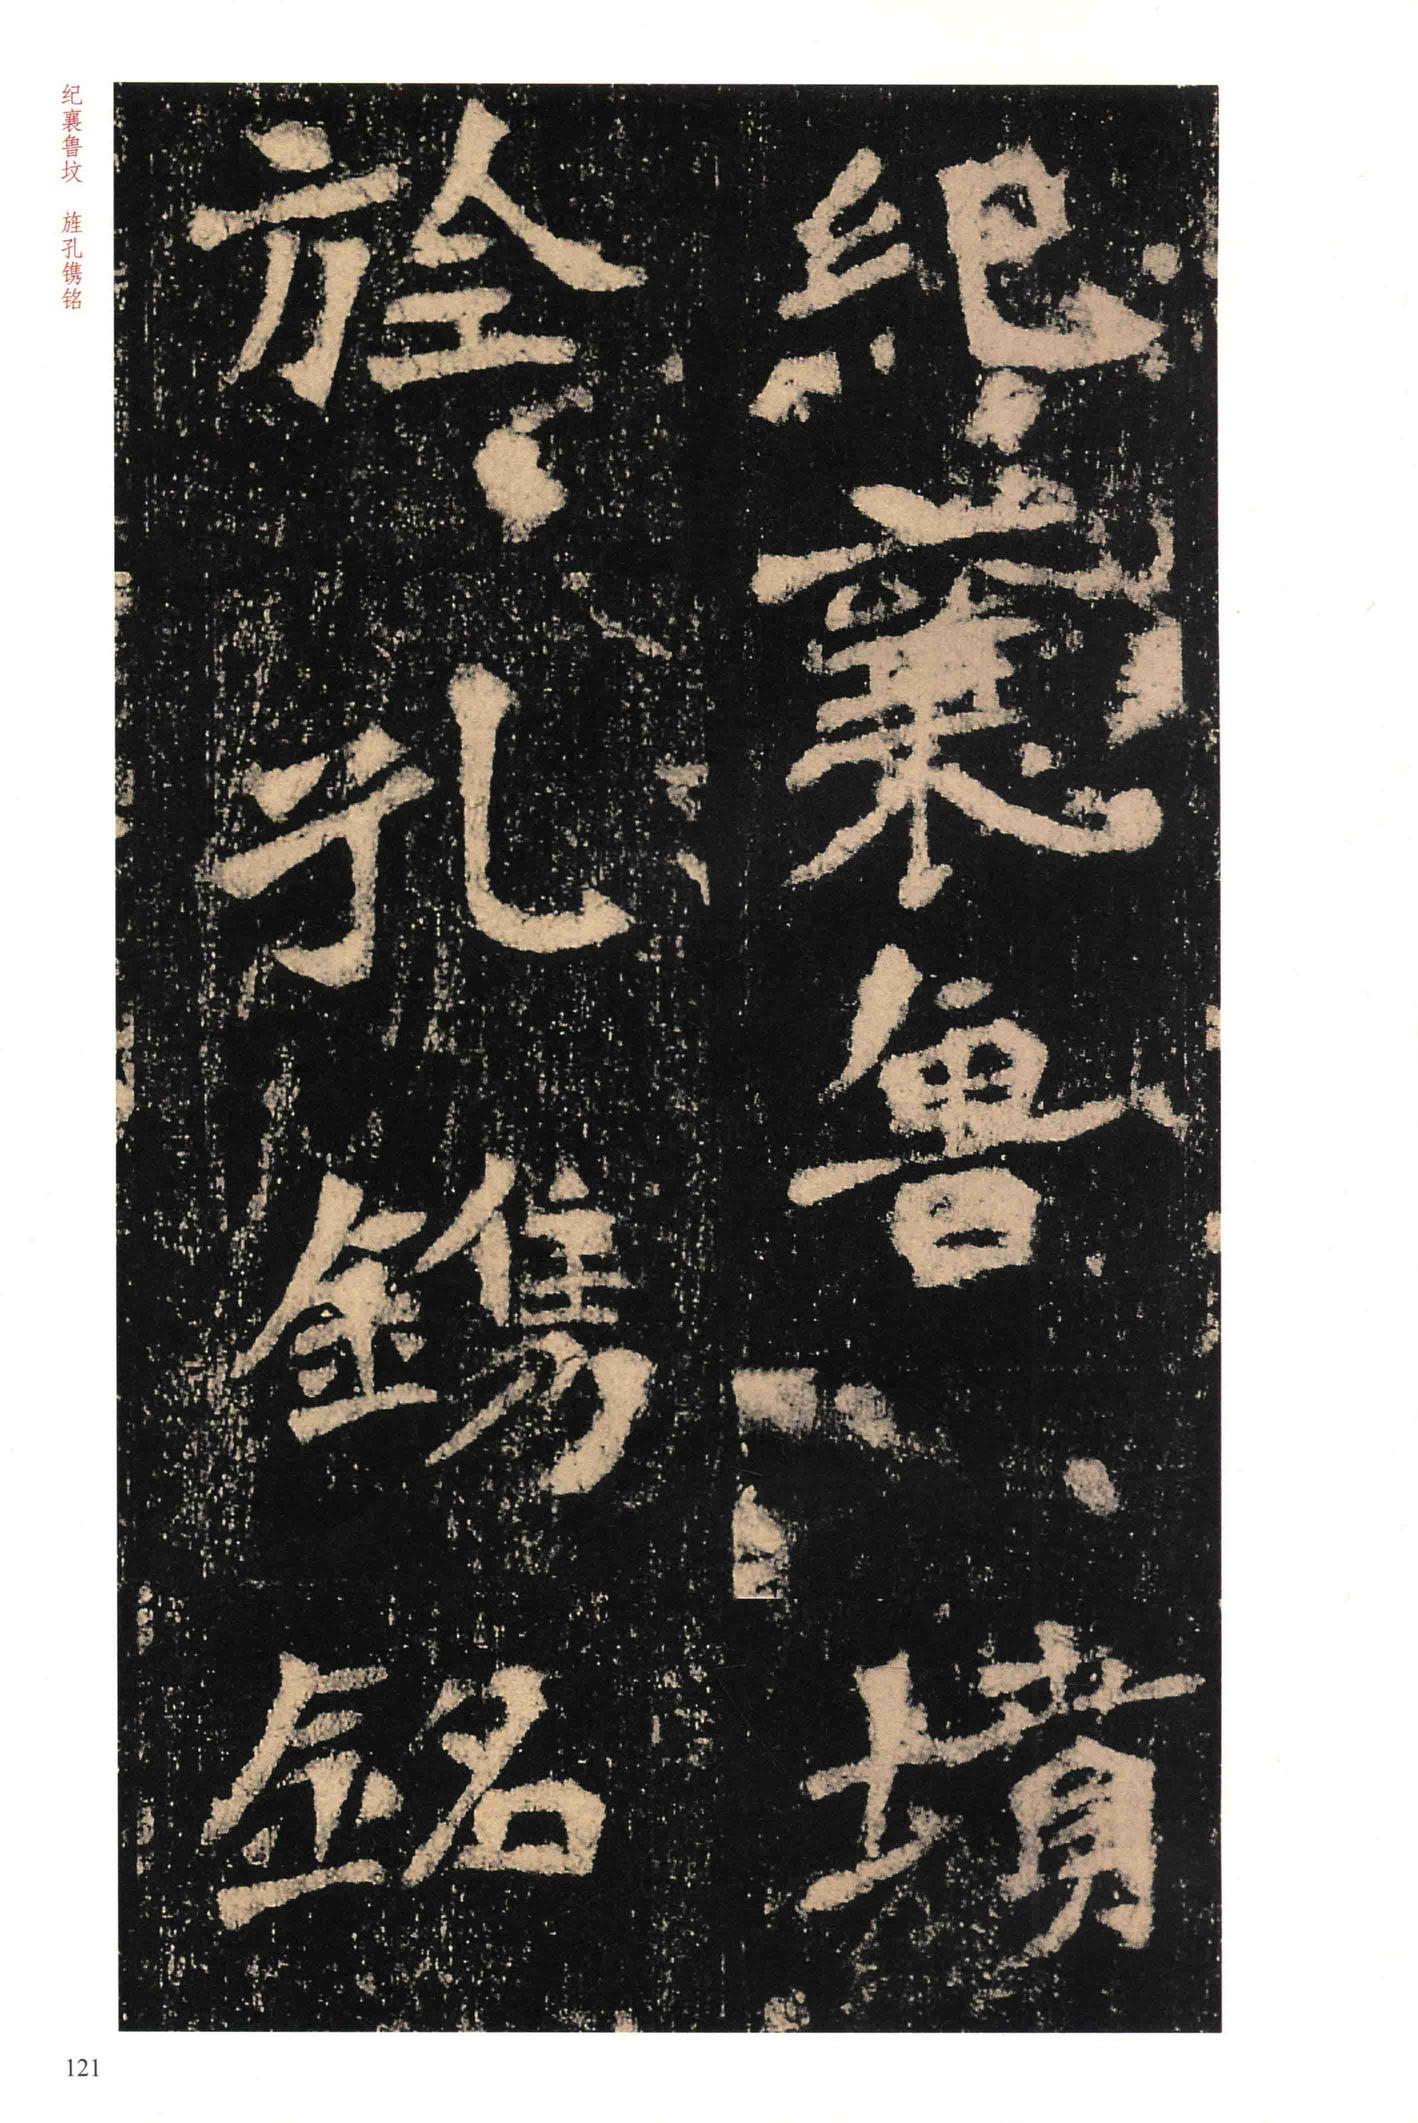 紀襄魯墳
旌孔鐫銘
纪襄鲁坟 旌孔镌铭
121